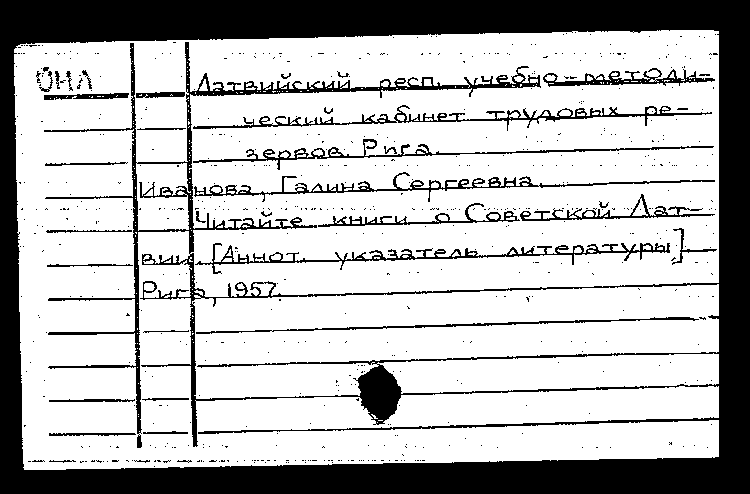 ОНЛ Латвийский респ. учебно-методи-
ческий кабинет трудовых ре-
зервов. Рига.
Иванова, Галина Сергеевна.
Читайте книги о Советской Лат-
вии. [Аннот. указатель литературы].
Рига, 1957.